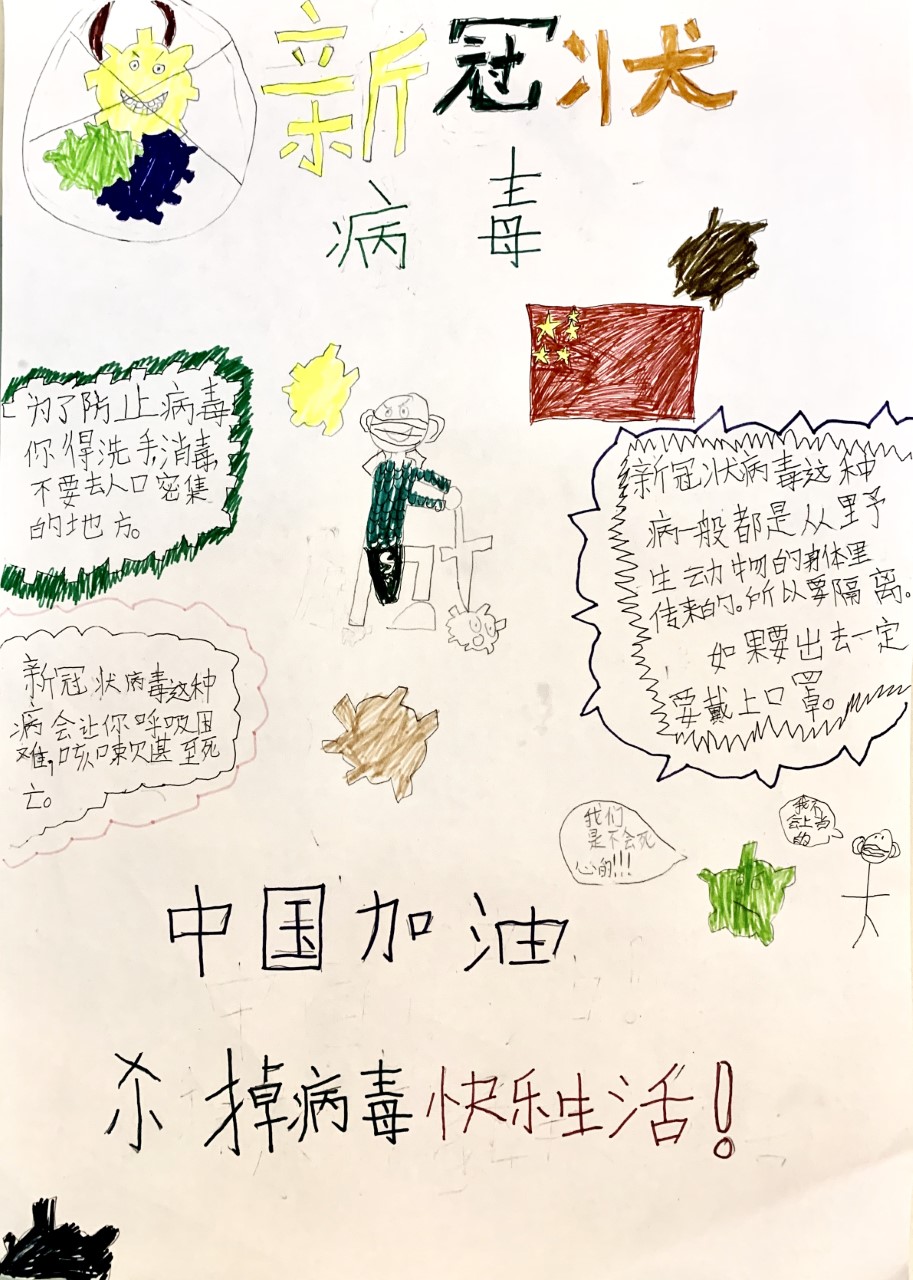 新冠状
病毒
为了防止病毒
你得洗手,消毒,
不要去人口密集
的地方。
新冠状病毒这种
病一般都是从野
生动物的身体里
传来的。所以要隔离。
如果要出去一定
要戴上口罩。
新冠状病毒这种
病会让你呼吸困
难,咳嗽甚至死
亡。
我们
是不会死
心的!!!
我不
会上当
的
中国加油
杀掉病毒快乐生活!